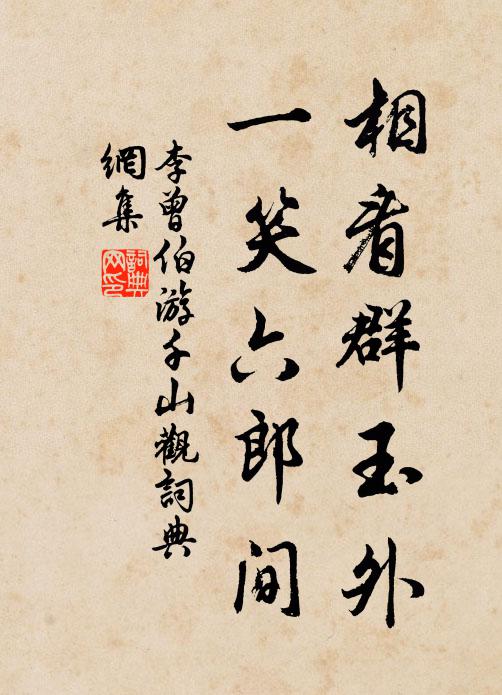 相看群玉外
一笑六郎间
李曾伯游千山觀詞典
網集
詞典
网印